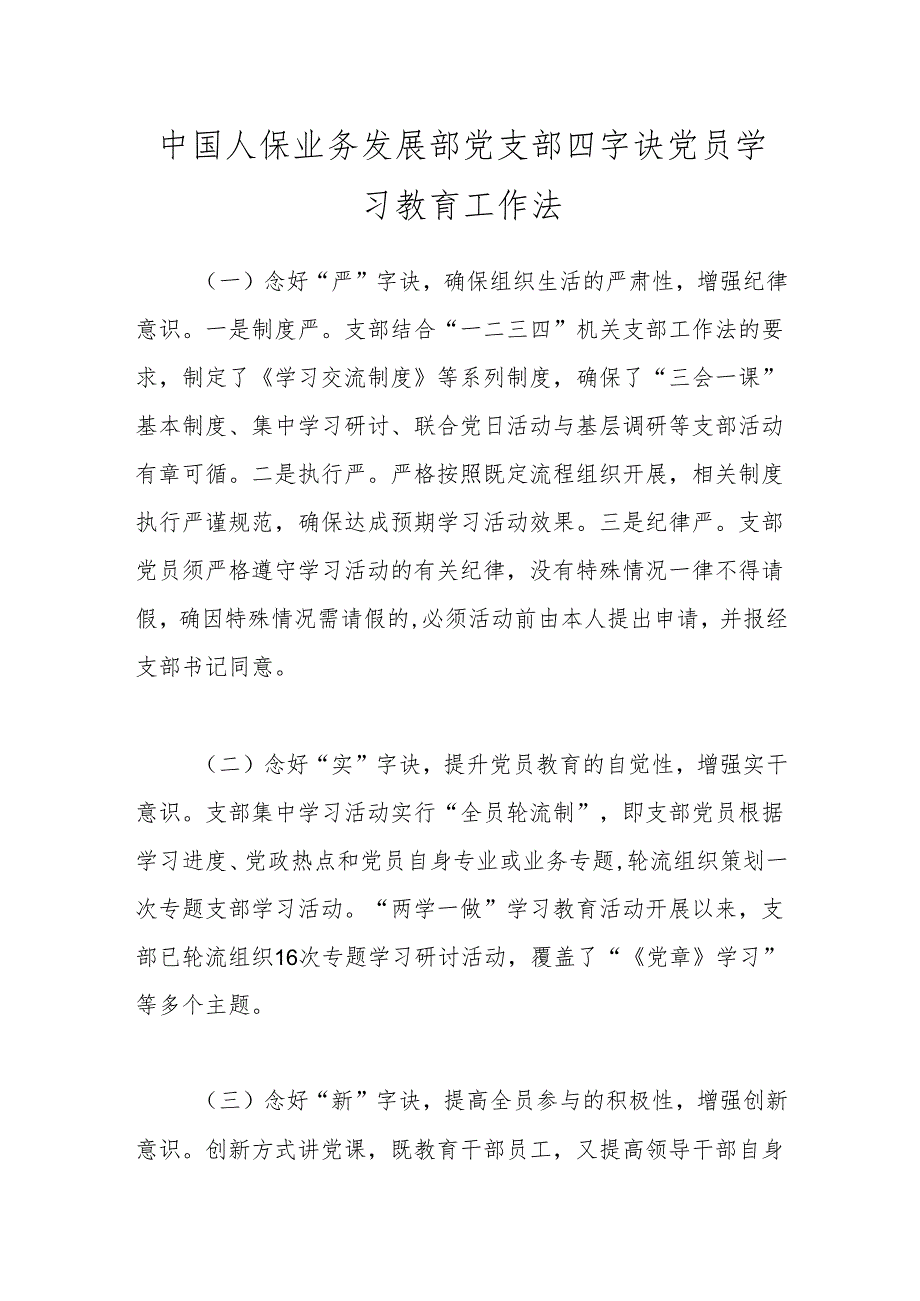 中国人保业务发展部党支部四字诀党员学
习教育工作法
（一）念好“严”字诀，确保组织生活的严肃性，增强纪律
意识。一是制度严。支部结合“一二三四”机关支部工作法的要
求，制定了《学习交流制度》等系列制度，确保了“三会一课”
基本制度、集中学习研讨、联合党日活动与基层调研等支部活动
有章可循。二是执行严。严格按照既定流程组织开展，相关制度
执行严谨规范，确保达成预期学习活动效果。三是纪律严。支部
党员须严格遵守学习活动的有关纪律，没有特殊情况一律不得请
假，确因特殊情况需请假的,必须活动前由本人提出申请，并报经
支部书记同意。
（二）念好“实”字诀，提升党员教育的自觉性，增强实干
意识。支部集中学习活动实行“全员轮流制”，即支部党员根据
学习进度、党政热点和党员自身专业或业务专题,轮流组织策划一
次专题支部学习活动。“两学一做”学习教育活动开展以来，支
部已轮流组织16次专题学习研讨活动，覆盖了“《党章》学习”
等多个主题。
（三）念好“新”字诀，提高全员参与的积极性，增强创新
意识。创新方式讲党课，既教育干部员工，又提高领导干部自身